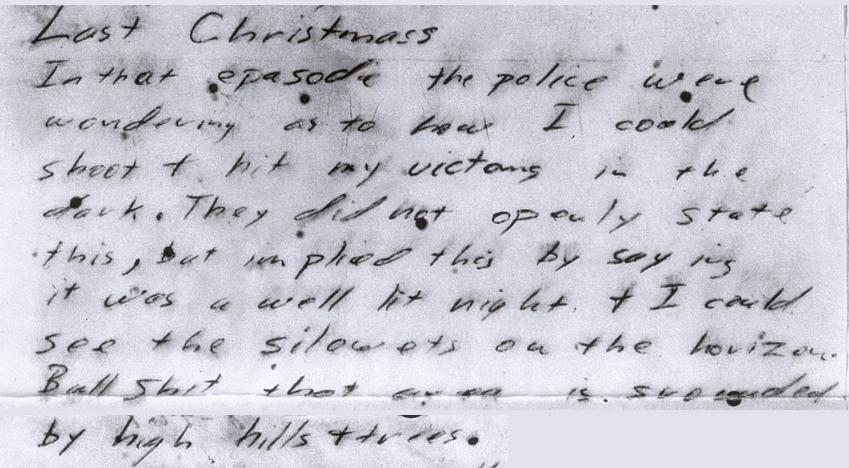 Last Christmass
In that epasode the police were
wondering as to how I could
shoot + hit my victoms in the
dark. They did not openly state
this, but implied this by saying
it was a well lit night + I could
see the silowets on the horizon.
Bull Shit that area is srounded
by high hills + trees.